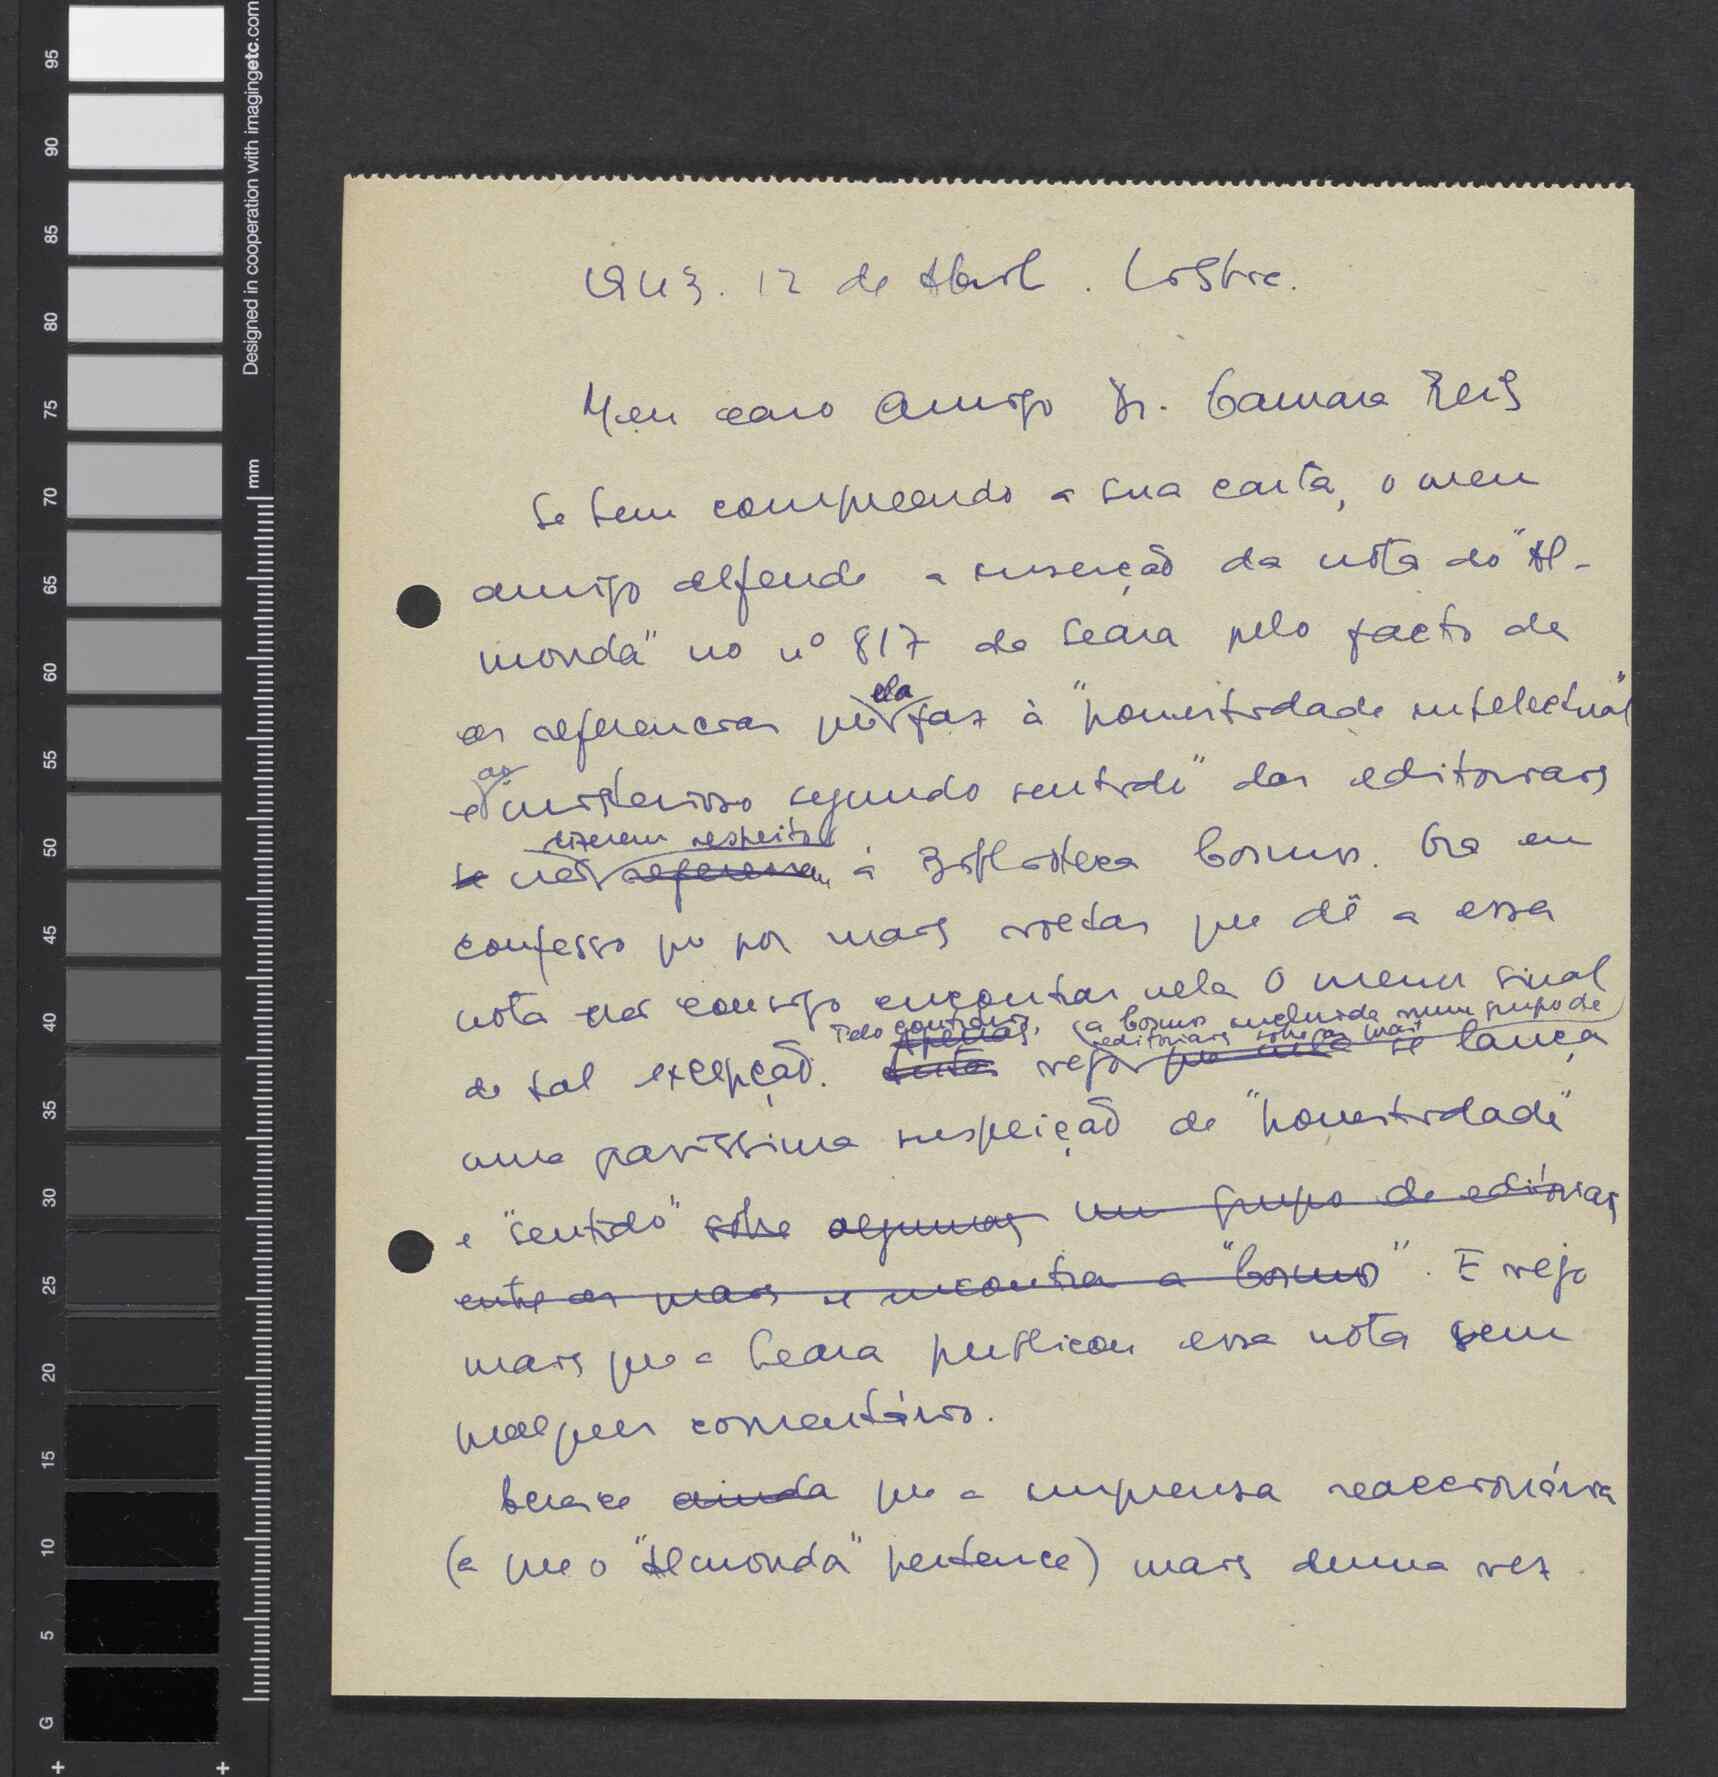 1943. 12 de Abril. Lisboa.
Meu caro Amigo Dr. Camara Reis
Se bem compreendo a sua carta, o meu
amigo defende a inserção da nota do "Al-
monda" no nº 817 da Seara pelo facto de
as referencias que ela faz à "honestidade intelectual"
e ao misterioso segundo sentido" dos editoriais
se não referirem dizerem respeito à Biblioteca Cosmos. Ora eu
confesso que por mais voltas que dê a essa
nota não consigo encontrar nela o menor sinal
de tal excepção. Pelo contrário, Apenas vejo a Cosmos incluida num grupo de
editoriais sobre as quais se lança
uma gravíssima suspeição de "honestidade"
e "sentido" sobre algumas um grupo de editoriais
entre as quais se encontra a "Cosmos". E vejo
mais que a Seara publicou essa nota sem
qualquer comentário.
Acresce ainda que a imprensa reaccionária
(a que o "Almonda" pertence) mais duma vez
95
90
85
80
75
70
65
60
55
50
45
40
35
30
25
20
15
10
5
G
mm
Designed in cooperation with imagingetc.com